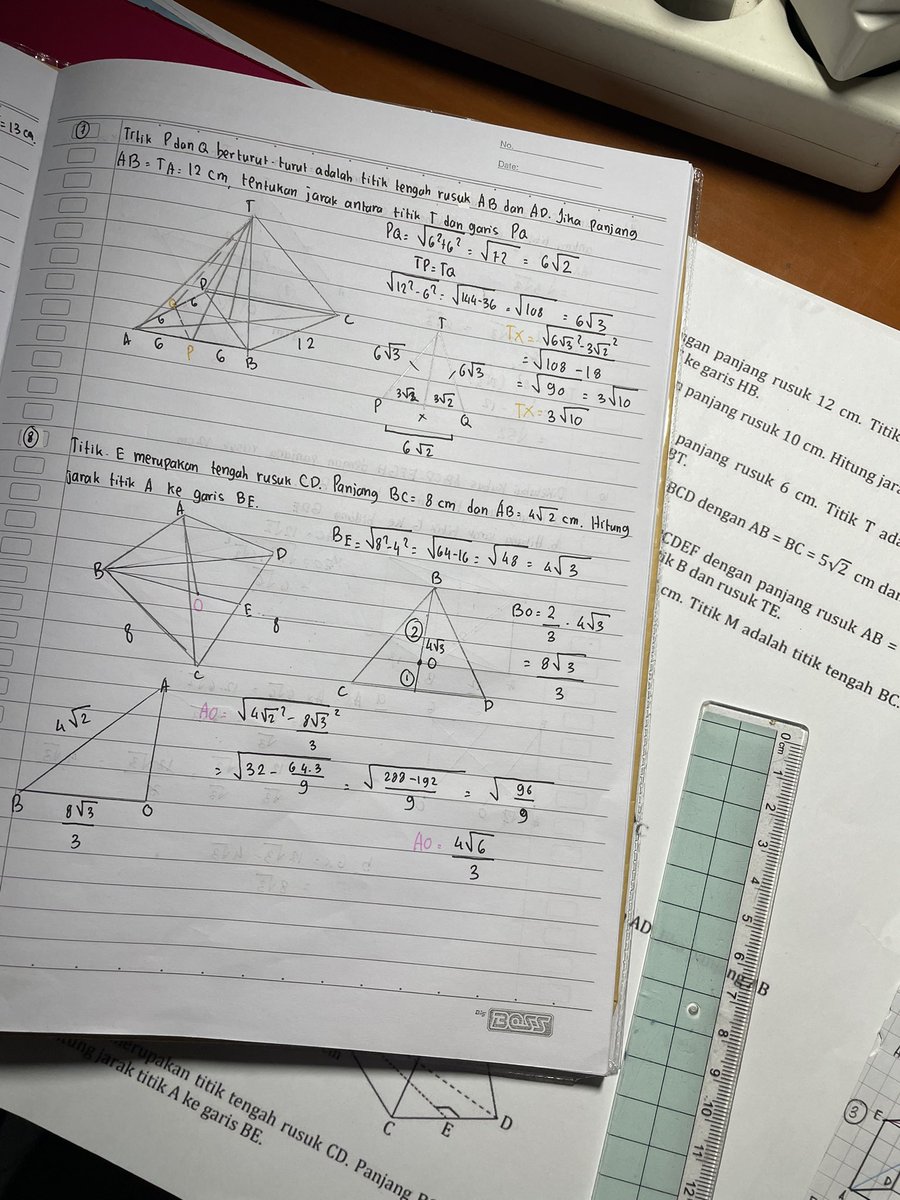 = 13 cm.
No.
Date:
7
Titik P dan Q berturut-turut adalah titik tengah rusuk AB dan AD. Jika panjang
AB = TA = 12 cm, tentukan jarak antara titik T dan garis PQ
PQ = √6²+6² = √72 = 6√2
TP = TQ
√12²-6² = √144-36 = √108 = 6√3
TX = √6√3²-3√2²
= √108 - 18
= √90 = 3√10
TX = 3√10
T
D
Q
6
6
A
6
P
6
B
12
C
T
6√3
6√3
P
3√2
3√2
Q
X
6√2
8
Titik E merupakan tengah rusuk CD. Panjang BC = 8 cm dan AB = 4√2 cm. Hitung
jarak titik A ke garis BE.
BE = √8²-4² = √64-16 = √48 = 4√3
A
B
D
O
E
8
8
C
B
2
4√3
O
1
C
D
BO = 2/3 . 4√3
= 8√3/3
A
4√2
B
O
8√3/3
AO = √4√2² - 8√3/3²
= √32 - 64.3/9 = √288-192/9 = √96/9
AO = 4√6/3
Big BOSS
ngan panjang rusuk 12 cm. Titik
ke garis HB.
panjang rusuk 10 cm. Hitung jara
panjang rusuk 6 cm. Titik T ada
BT.
BCD dengan AB = BC = 5√2 cm dan
CDEF dengan panjang rusuk AB =
tik B dan rusuk TE.
cm. Titik M adalah titik tengah BC.
C
AD
ng AB
0 cm 1 2 3 4 5 6 7 8 9 10 11 12
merupakan titik tengah rusuk CD. Panjang B
tung jarak titik A ke garis BE.
C
E
D
3
E
D